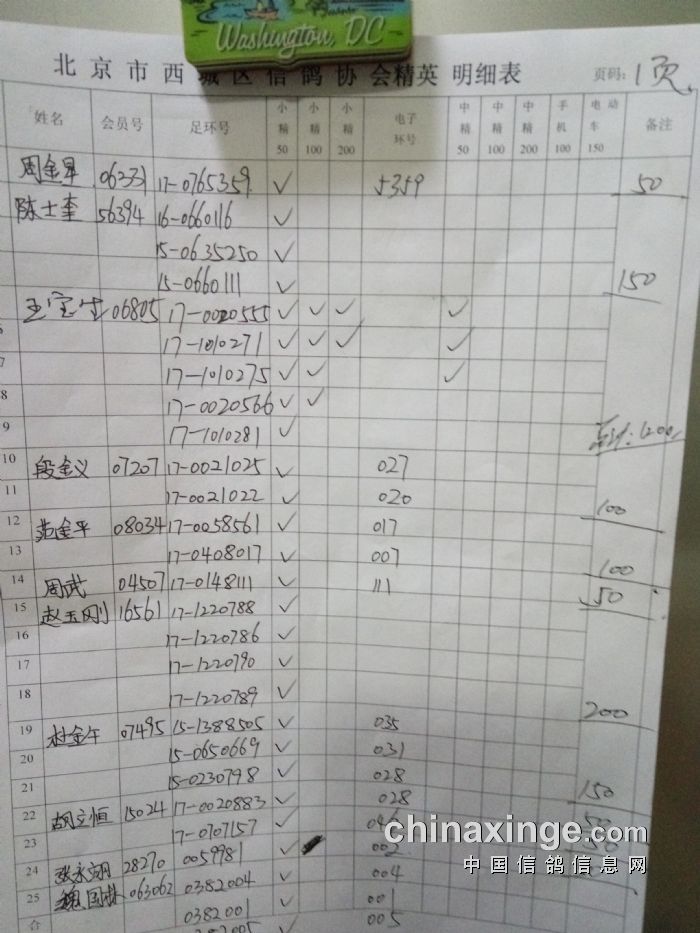 Washington, DC
北京市西城区信鸽协会精英明细表 页码: 1页
姓名 会员号 足环号 小精50 小精100 小精200 电子环号 中精50 中精100 中精200 手机100 电动车150 备注
周金早 06331 17-0765359 ✓ 5359 50
陈士奎 56394 16-0660116 ✓
15-0635250 ✓
15-0660111 ✓ 150
王宝生 06805 17-0020555 ✓ ✓ ✓ ✓
17-1010271 ✓ ✓ ✓ ✓
7 17-1010275 ✓ ✓ ✓
8 17-0020566 ✓ ✓
9 17-1010281 ✓ 1200
10 段金义 07207 17-0021025 ✓ 027
11 17-0021022 ✓ 020 100
12 范金平 08034 17-0058561 ✓ 017
13 17-0408017 ✓ 007 100
14 周武 04507 17-0148111 ✓ 111 50
15 赵玉刚 16561 17-1220788 ✓
16 17-1220786 ✓
17 17-1220790 ✓
18 17-1220789 ✓ 200
19 杜金午 07495 15-1388505 ✓ 035
20 15-0650669 ✓ 031
21 15-0230798 ✓ 028 150
22 胡立恒 15024 17-0020883 ✓ 028 50
23 17-0707157 ✓ 046
24 张永翊 28270 0059781 ✓ 002
25 魏国林 063062 0382004 ✓ 004
合 0382001 ✓ 001
005
chinaxinge.com
中国信鸽信息网